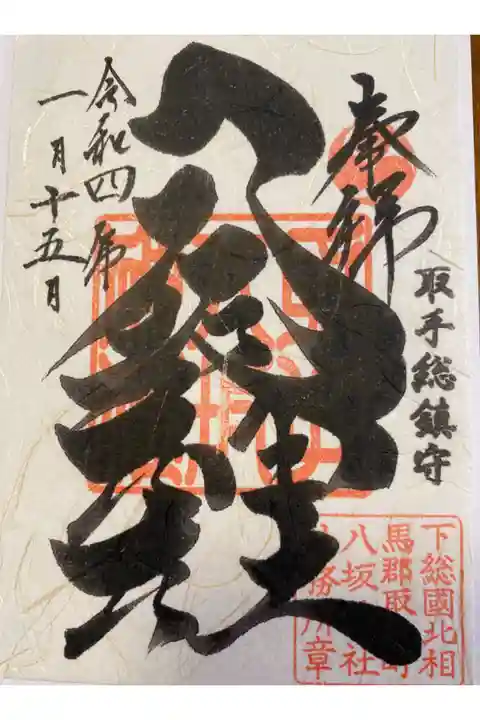 奉拝
取手総鎮守
八坂神社
令和四年
一月十五日
下総國北相
馬郡取 町
八坂 社
務所章